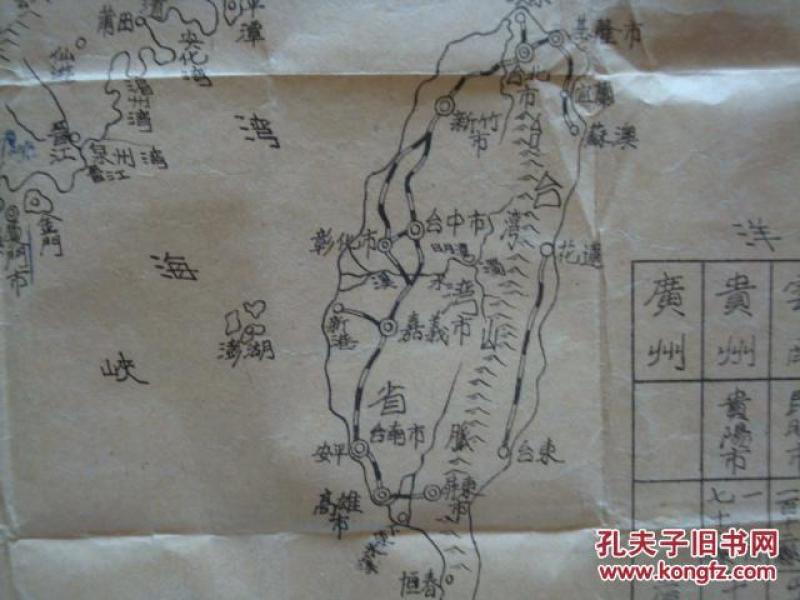 莆田
平潭
仙游
湄洲湾
晋江
泉州湾
晋江
金門
厦門市
湾
海
峡
澎湖
基隆市
台北市
宜蘭
蘇澳
新竹市
台
湾
山
脈
台
湾
省
台中市
彰化市
日月潭
濁
水
溪
花蓮
新港
嘉義市
台南市
安平
高雄市
屏東市
台東
恒春
洋
廣州
貴州
貴陽市
孔夫子旧书网
www.kongfz.com